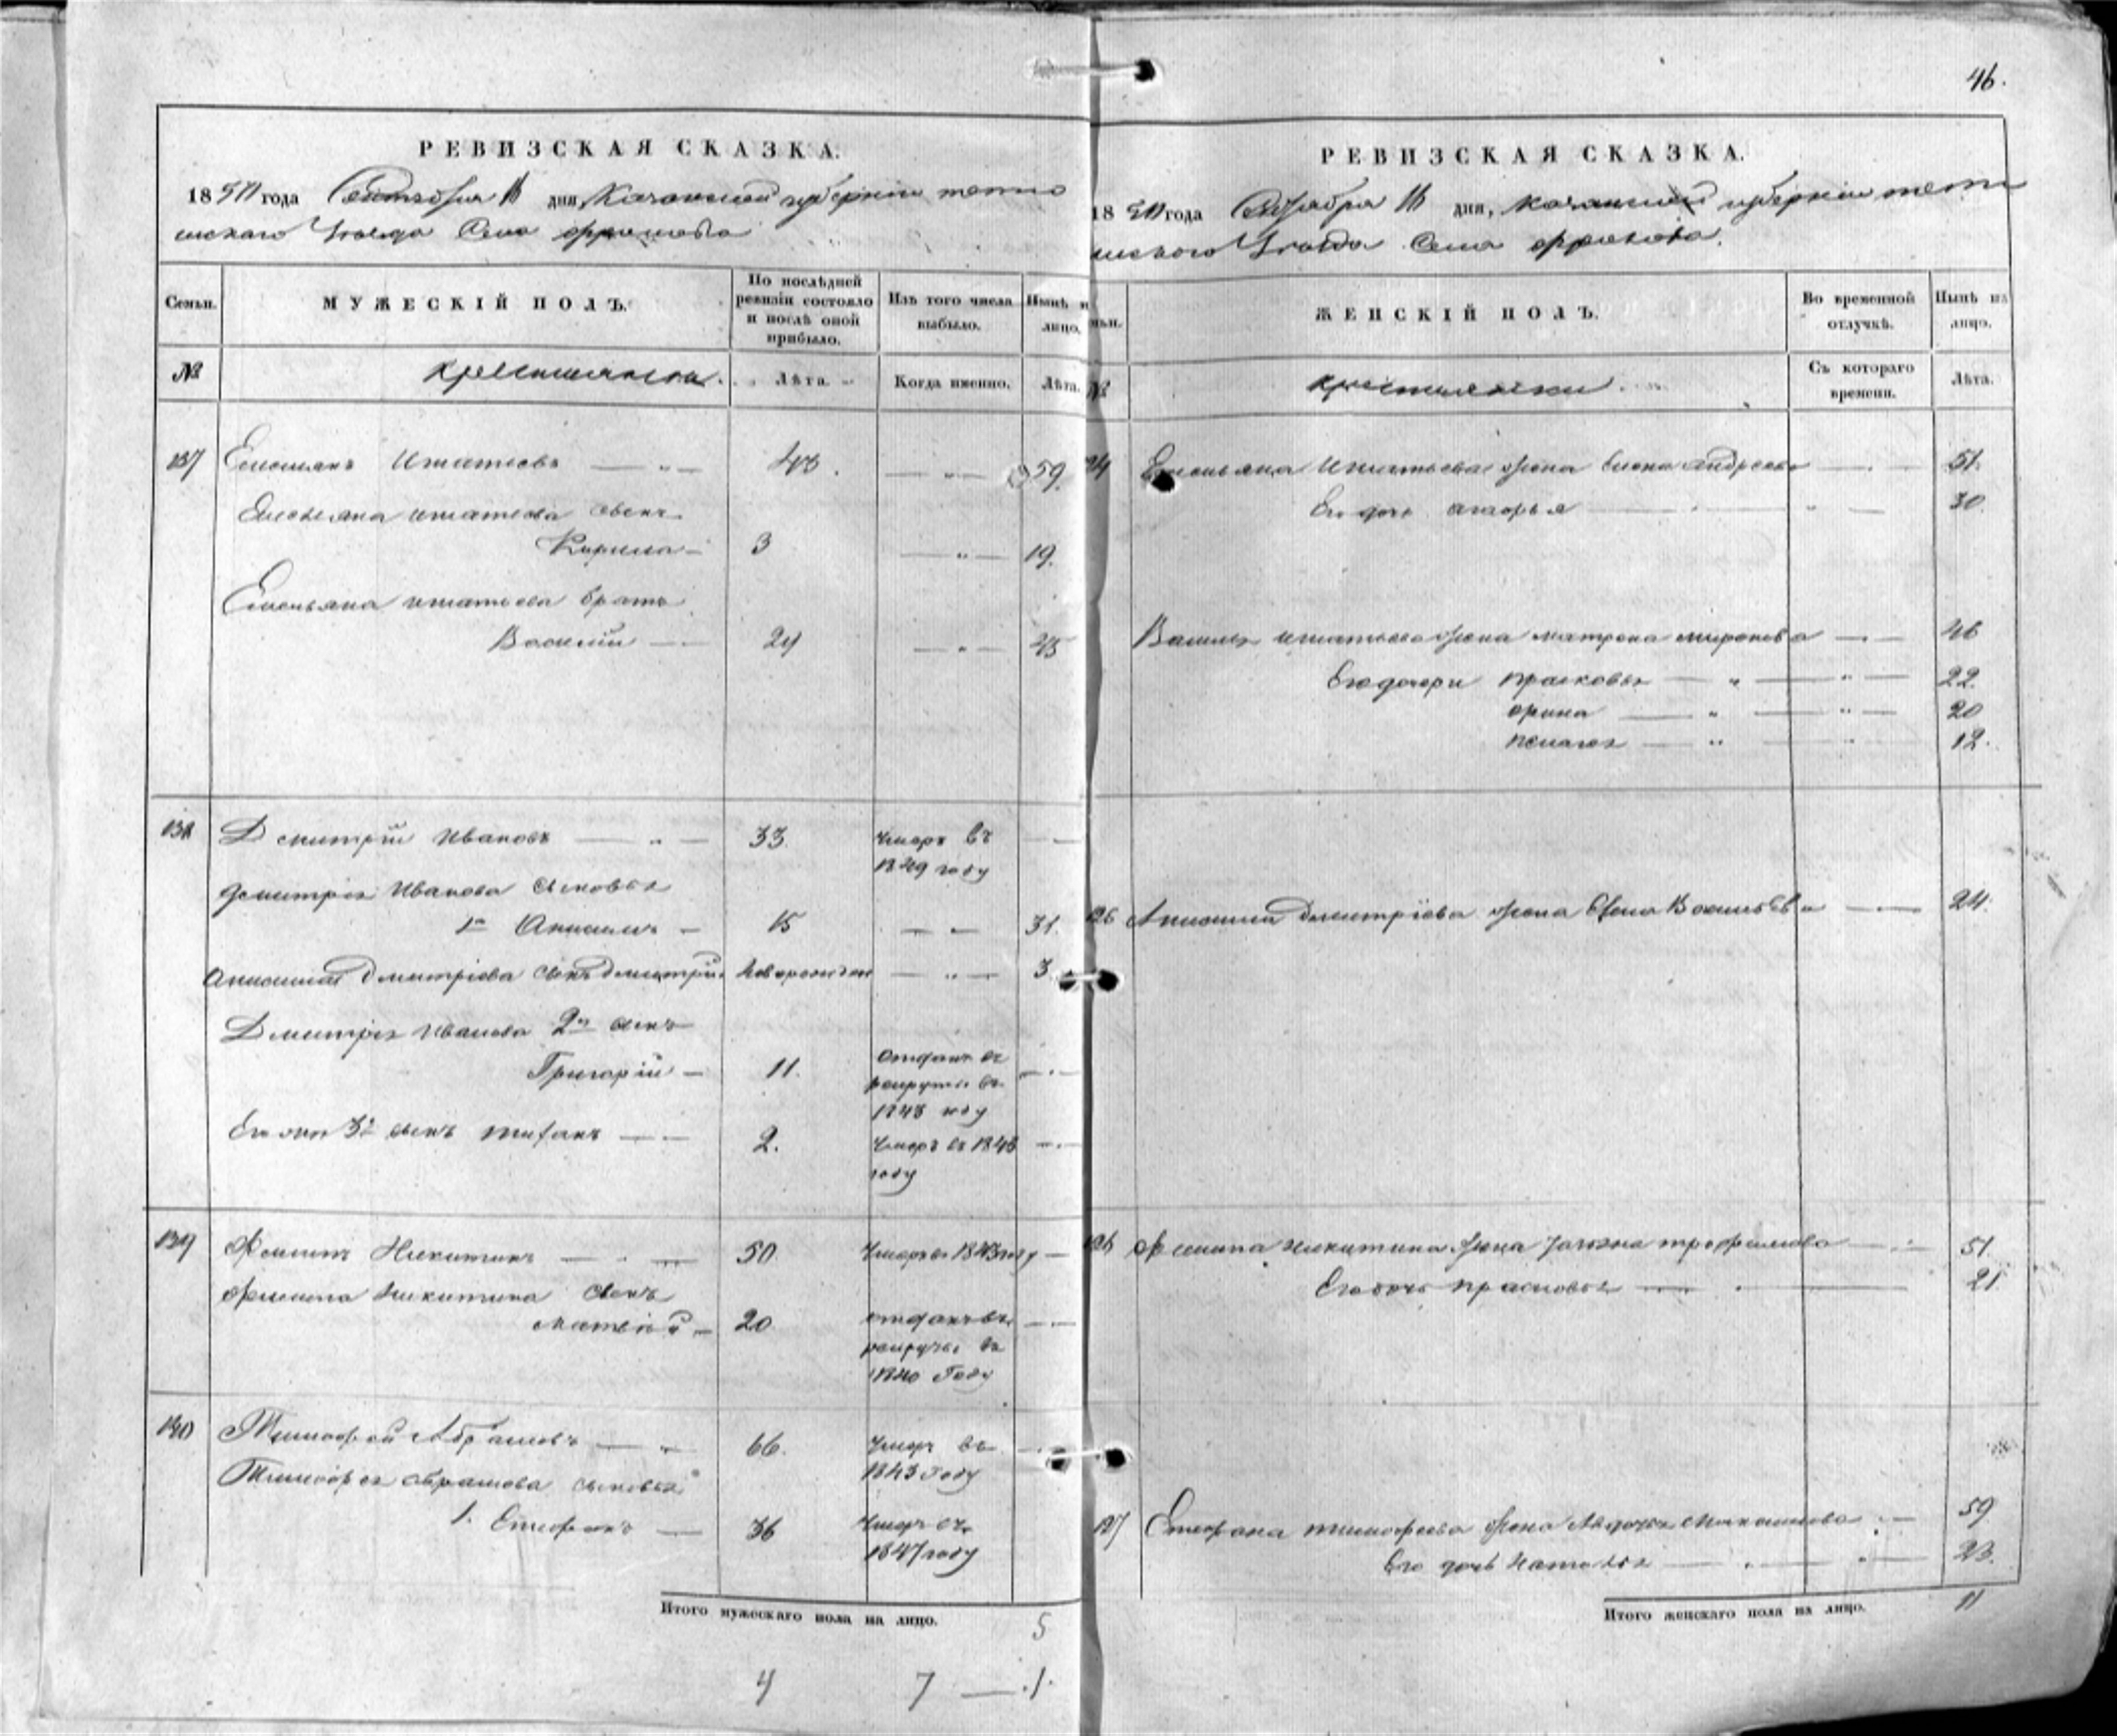 46.
РЕВИЗСКАЯ СКАЗКА.
1850 года Сентября дня Казанской губерніи тетю
шскаго Уезда Села
Семьи.
МУЖЕСКІЙ ПОЛЪ.
По послѣдней ревизіи состояло и послѣ оной прибыло.
Изъ того числа выбыло.
Нынѣ на лицо.
№
крестьяне.
Лѣта.
Когда именно.
Лѣта.
137 Емельянъ Игнатьевъ — 48. — 59.
Емельяна Игнатьева сынъ
Кирила — 3 — 19.
Емельяна Игнатьева братъ
Василій — 24 — 45
138 Дмитрій Ивановъ — 33. Умеръ въ
1849 году
Дмитрія Иванова сыновья
1й Анисимъ — 15 — 31.
Анисима Дмитріева сынъ Дмитрій новорожден — 3.
Дмитрія Иванова 2й сынъ
Григорій — 11. отданъ въ
рекруты въ
1848 году
Его же 3й сынъ — 2. Умеръ въ
году
139 Филипъ Никитинъ — 50. Умеръ въ
Филипа Никитина сынъ
Матвей — 20 отданъ въ
рекруты въ
1840 Году
140 Тимофей Абрамовъ — 66. Умеръ въ
1843 Году
Тимофея Абрамова сыновья
1. Степанъ — 36 Умеръ въ
1847 году
Итого мужескаго пола на лицо. 5
4 7 — 1.
РЕВИЗСКАЯ СКАЗКА.
1850 года дня, Казанской губерніи тетю
шскаго Уезда Села
Семьи.
ЖЕНСКІЙ ПОЛЪ.
Во временной отлучкѣ.
Нынѣ на лицо.
№
крестьянки.
Съ котораго времени.
Лѣта.
Емельяна Игнатьева жена Елена Андреева — 51.
Его дочь — 30.
Василья Игнатьева жена Матрона Миронова — 46
Его дочери Прасковья — 22.
Орина — 20
Пелагея — 12.
Анисима Дмитріева жена Васильева — 24.
Филипа Никитина жена Трофимова — 51.
Его дочь Прасковья — 21
127 Степана Тимофеева жена Авдотья — 59
Его дочь Наталья — 23.
Итого женскаго пола на лицо. 11